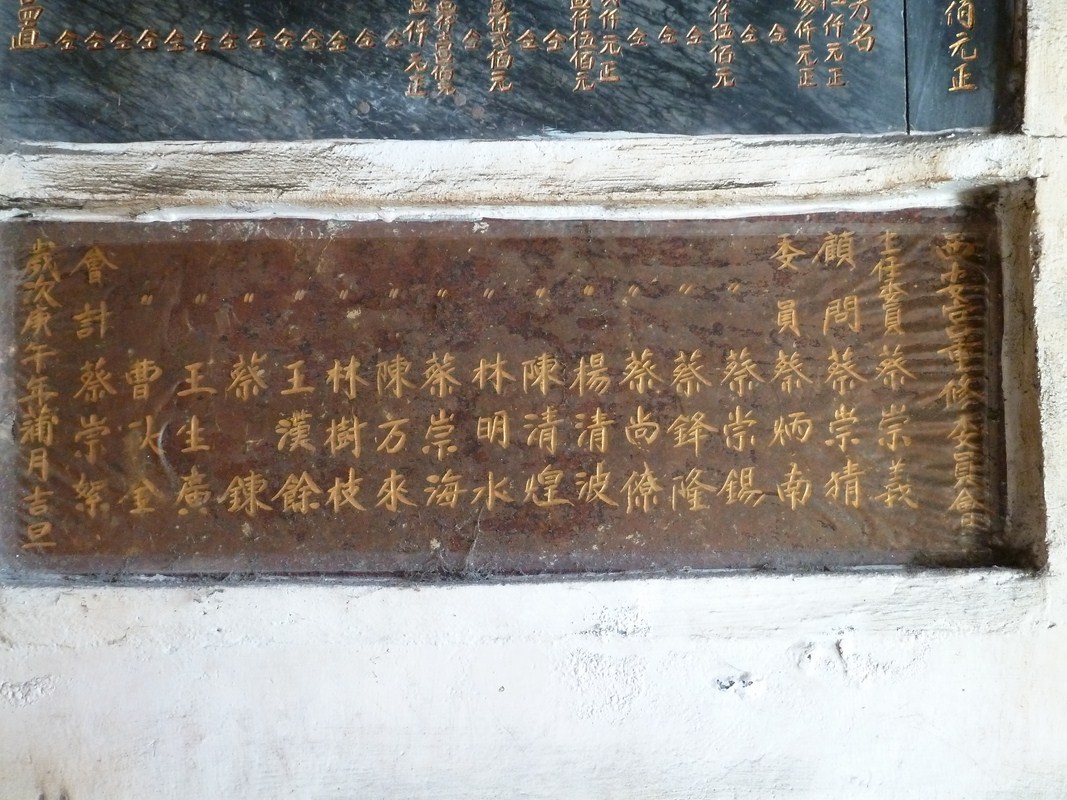 佰元正
芳名
仟元正
仟元正
仝
仝
仟伍佰元
仝
仝
仝
仟元正
仟伍佰元
仝
仝
仟佰元
仝
仟元正
仝
仝
仝
仝
仝
仝
仝
仝
仝
仝
仝
仝
宮重修委員會
主任委員 蔡崇義
顧問 蔡崇猜
委員 蔡炳南
〃 蔡崇錫
〃 蔡鋒隆
〃 蔡尚僚
〃 楊清波
〃 陳清煌
〃 林明水
〃 蔡崇海
〃 陳万來
〃 林樹枝
〃 王漢餘
〃 蔡鍊
〃 王生廣
〃 曹火金
會計 蔡崇絮
歲次庚午年蒲月吉旦